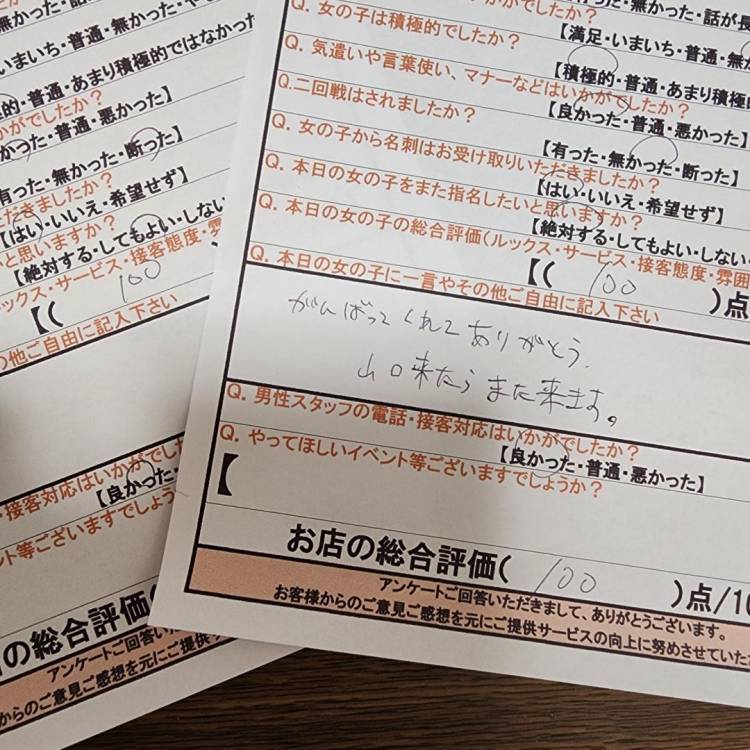 いかがでしたか？
無かった・話が長
Q. 女の子は積極的でしたか？
【満足・いまいち・普通・無か
Q. 気遣いや言葉使い、マナーなどはいかがでしたか？
【積極的・普通・あまり積極的
Q.二回戦はされましたか？
【良かった・普通・悪かった】
Q. 女の子から名刺はお受け取りいただきましたか？
【有った・無かった・断った】
Q. 本日の女の子をまた指名したいと思いますか？
【はい・いいえ・希望せず】
Q. 本日の女の子の総合評価(ルックス・サービス・接客態度・雰囲
【絶対する・してもよい・しない・
Q. 本日の女の子に一言やその他ご自由に記入下さい
【( 100 )点/
がんばってくれてありがとう.
山口来たらまた来ます。
Q. 男性スタッフの電話・接客対応はいかがでしたか？
【良かった・普通・悪かった】
Q. やってほしいイベント等ございますでしょうか？
【
お店の総合評価( 100 )点/10
アンケートご回答いただきまして、ありがとうございます。
お客様からのご意見ご感想を元にご提供サービスの向上に努めさせていただ
いまいち・普通・無かった・
積極的ではなかった
的・普通・あまり積極的
かがでしたか？
かった・普通・悪かった】
有った・無かった・断った】
だきましたか？
【はい・いいえ・希望せず】
と思いますか？
【絶対する・してもよい・しない・
ックス・サービス・接客態度・雰
【( 100
の他ご自由に記入下さい
・接客対応はいかがでした
【良かった・
ント等ございますでしょう
の総合評価(
アンケートご回答いた
からのご意見ご感想を元にご提供サ